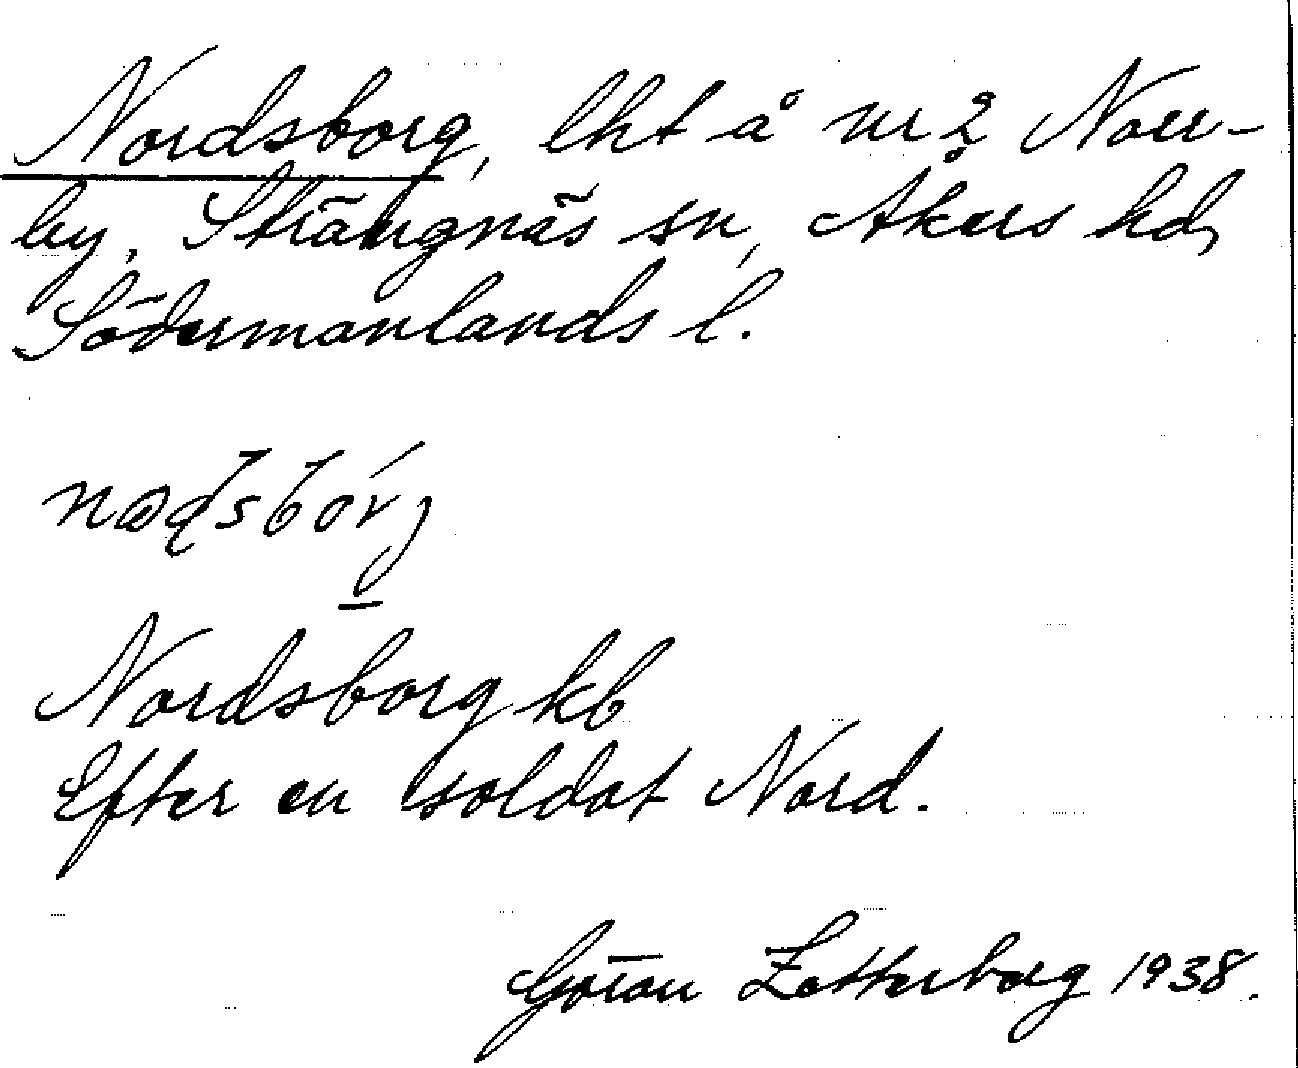 Nordsborg, lht å nr 2 Norr-
by, Strängnäs sn, Åkers hd,
Södermanlands l.
Nordsborg kb
Efter en soldat Nord.
Göran Zetterberg 1938.